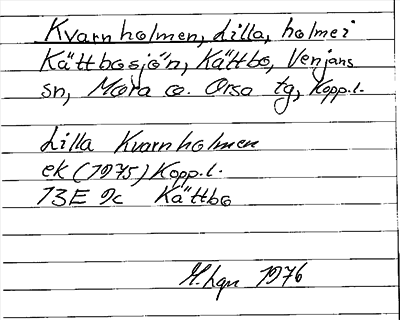 Kvarnholmen, Lilla, holme i
Kättbosjön, Kättbo, Venjans
sn, Mora o. Orsa tg, Kopp.l.
Lilla Kvarnholmen
ek (1975) Kopp.l.
13E 9c Kättbo
1976